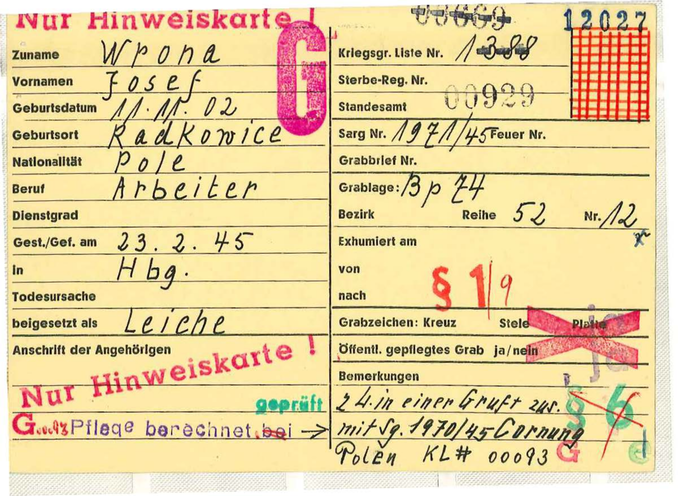 Nur Hinweiskarte !
00669
12027
Zuname Wrona
Vornamen Josef
Geburtsdatum 11.11.02
Geburtsort Radkowice
Nationalität Pole
Beruf Arbeiter
Dienstgrad
Gest./Gef. am 23.2.45
in Hbg.
Todesursache
beigesetzt als Leiche
Anschrift der Angehörigen
Nur Hinweiskarte !
geprüft
G Pflege berechnet bei →
G
Kriegsgr. Liste Nr. 1388
Sterbe-Reg. Nr.
Standesamt 00929
Sarg Nr. 1971/45 Feuer Nr.
Grabbrief Nr.
Grablage: Bp 74
Bezirk Reihe 52 Nr. 12
Exhumiert am
von
nach
§ 1/9
Grabzeichen: Kreuz Stele Platte
ja
Öffentl. gepflegtes Grab ja/nein
ja
Bemerkungen
z 4. in einer Gruft zus.
mit Sg. 1970/45 Cornung
§ 6
Polen KL# 00093
G